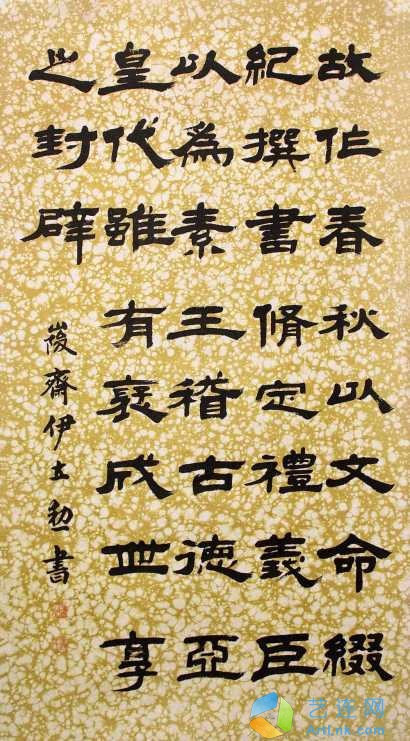 故作春秋以文命綴
紀撰書脩定禮義臣
以爲素王稽古德亞
皇代雖有褒成世享
之封辟
峻齋伊立勳書
艺连网
ArtLnk.com